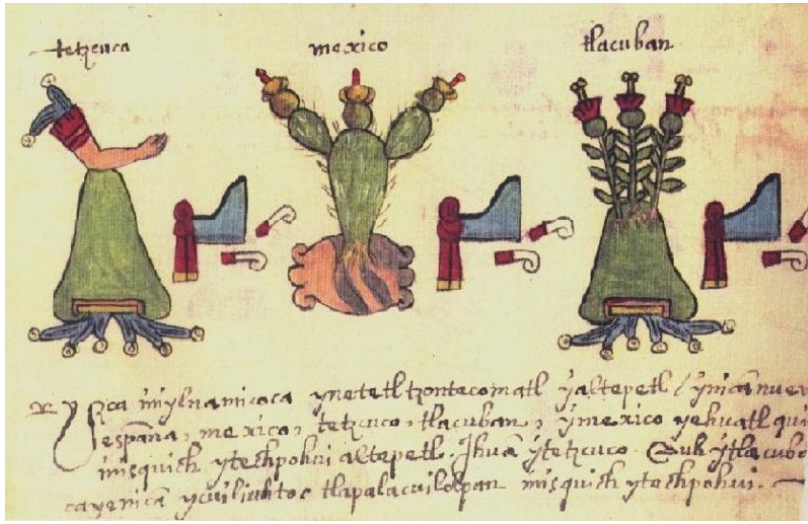 tetzcuca
mexico
tlacuban
Yzca ymylnamicoca ynetetl tzontecomatl yaltepetl ynican nuev
españa, mexico, tetzcuco, tlacuban, ymexico yehuatl qui
misquich ytechpohui altepetl. Ihuā ytetzcuco. Auh ytlacubā
cayenicā ycuiliuhtoc tlapalacuilolpan misquich ytechpohui.